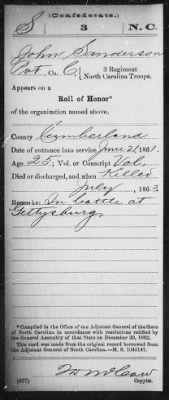 (Confederate.)
S 3 N.C.
John Sanderson
Pvt, Co. C, 3 Regiment
North Carolina Troops.
Appears on a
Roll of Honor*
of the organization named above.
County Cumberland
Date of entrance into service June 21, 1861.
Age 25; Vol. or Conscript Vol.
Died or discharged, and when Killed
July, 1863.
Remarks: In battle at
Gettysburg
*Compiled in the Office of the Adjutant General of the State
of North Carolina in accordance with resolutions ratified by
the General Assembly of that State on December 20, 1862.
This card was made from the original record borrowed from
the Adjutant General of North Carolina.—M. S.
(677)
Copyist.